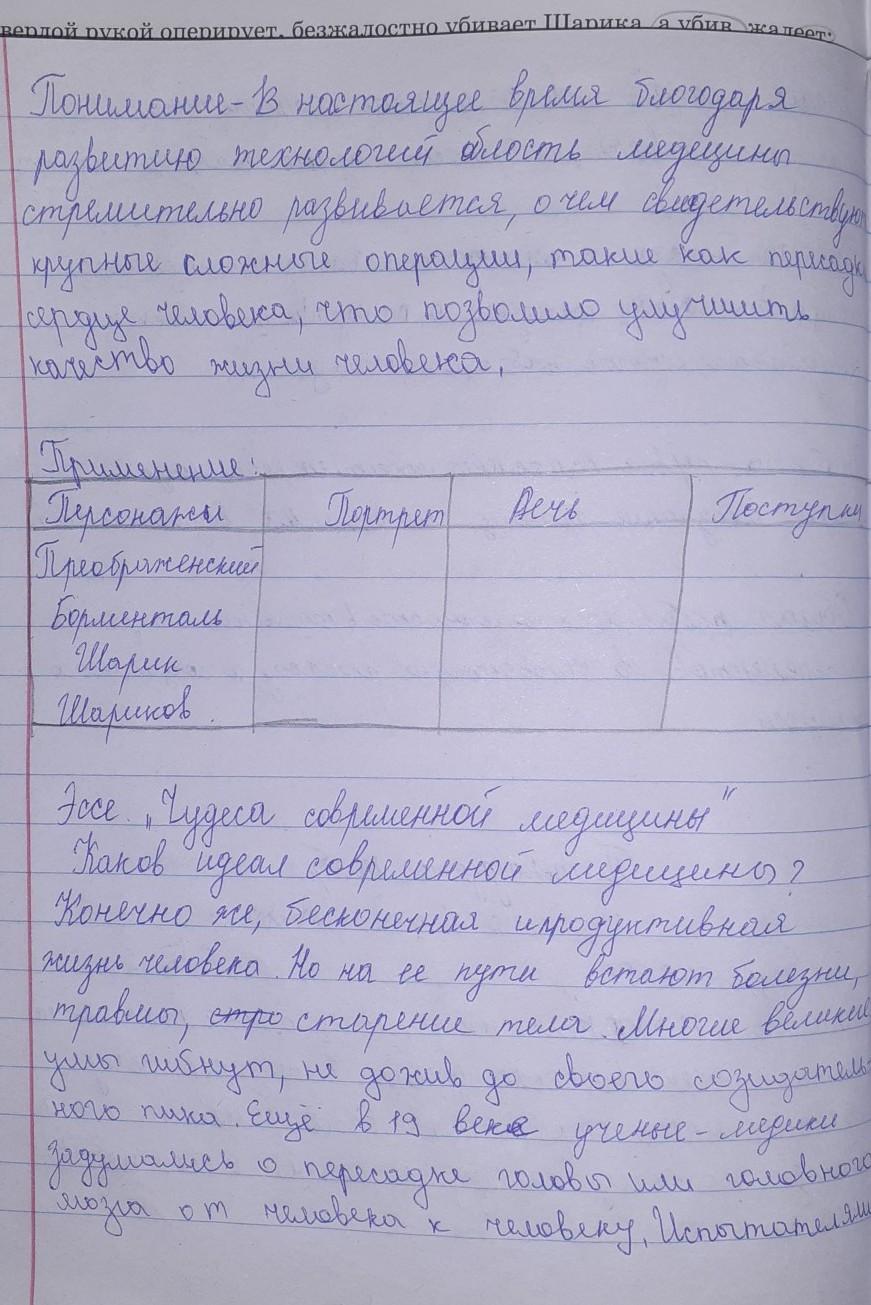 вердой рукой оперирует, безжалостно убивает Шарика, а убив жалеет.
Понимание - В настоящее время благодаря
развитию технологий область медецины
стремительно развивается, о чем свидетельствуют
крупные сложные операции, такие как пересадк
сердце человека, что позволило улучшить
качество жизни человека,
Применение:
Персонажи Портрет Речь Поступки
Преображенский
Борменталь
Шарик
Шариков
Эссе „Чудеса современной медицины"
Каков идеал современной медицины?
Конечно же, бесконечная и продуктивная
жизнь человека. Но на ее пути встают болезни,
травмы, стро старение тела. Многие великие
умы гибнут, не дожив до своего созидатель-
ного пика. Ещё в 19 веке ученые-медики
задумались о пересадке головы или головного
мозга от человека к человеку, Испытателями